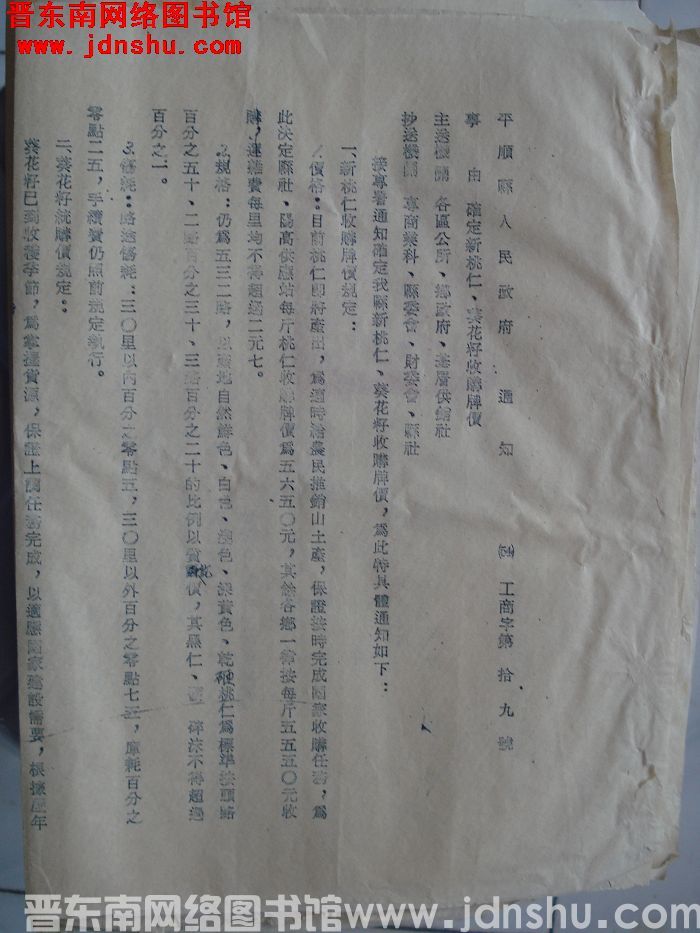 晋东南网络图书馆
www.jdnshu.com
平順縣人民政府通知 工商字第拾九號
事由 確定新桃仁、葵花籽收購牌價
主送機關 各區公所、鄉政府、基層供銷社
抄送機關 專商業科、縣委會、財委會、縣社
接專署通知確定我縣新桃仁、葵花籽收購牌價，爲此特具體通知如下：
一、新桃仁收購牌價規定：
1.價格：目前桃仁即將產出，爲適時給農民推銷山土產，保證按時完成國家收購任務，爲
此決定縣社、陽高供應站每斤桃仁收購牌價爲五六五〇元，其餘各鄉一律按每斤五五五〇元收
購，運雜費每里均不得超過二元七。
2.規格：仍爲五三二路，以產地自然鮮色、白色、淺色、深黃色、乾硬桃仁爲標準按頭路
百分之五十、二路百分之三十、三路百分之二十的比例以質論價，其黑仁、碎沫不得超過
百分之二。
3.傷耗：路途傷耗：三〇里以內百分之零點五，三〇里以外百分之零點七五，庫耗百分之
零點二五，手續費仍照前規定執行。
二、葵花籽統購價規定：
葵花籽已到收穫季節，爲掌握貨源，保證上調任務完成，以適應國家建設需要，根據歷年
晋东南网络图书馆 www.jdnshu.com